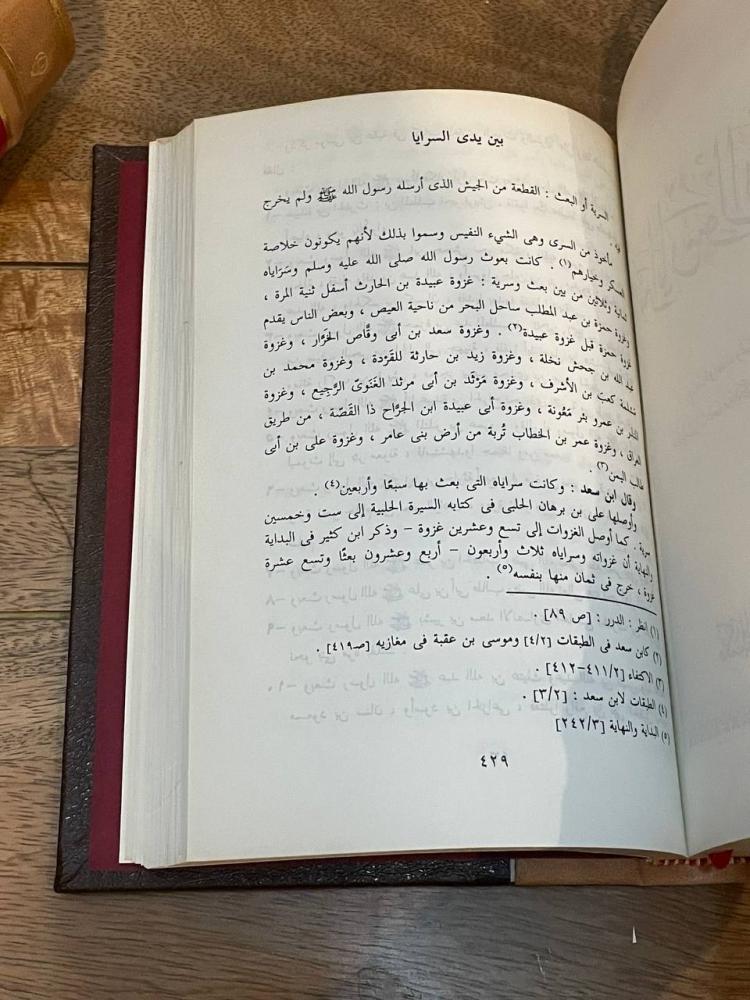 بين يدى السرايا
السرية أو البعث : القطعة من الجيش الذى أرسله رسول الله ﷺ ولم يخرج
مأخوذ من السرى وهى الشيء النفيس وسموا بذلك لأنهم يكونون خلاصة
العسكر وخيارهم(١) . كانت بعوث رسول الله صلى الله عليه وسلم وسَرَاياه
ثمانية وثلاثين من بين بعث وسرية : غزوة عبيدة بن الحارث أسفل ثنية المرة ،
وغزوة حمزة بن عبد المطلب ساحل البحر من ناحية العيص ، وبعض الناس يقدم
غزوة حمزة قبل غزوة عبيدة(٢) . وغزوة سعد بن أبى وقَّاص الخَرَّار ، وغزوة
عبد الله بن جحش نخلة ، وغزوة زيد بن حارثة للقَرْدة ، وغزوة محمد بن
مسلمة كعب بن الأشرف ، وغزوة مَرْثَد بن أبى مرثد الغَنَوىّ الرَّجيع ، وغزوة
المنذر بن عمرو بئر مَعُونة ، وغزوة أبى عبيدة ابن الجرَّاح ذا القَصّة ، من طريق
العراق ، وغزوة عمر بن الخطاب تُربة من أرض بنى عامر ، وغزوة على بن أبى
طالب اليمن(٣) .
وقال ابن سعد : وكانت سراياه التى بعث بها سبعًا وأربعين(٤) .
وأوصلها على بن برهان الحلبى فى كتابه السيرة الحلبية إلى ست وخمسين
سرية . كما أوصل الغزوات إلى تسع وعشرين غزوة – وذكر ابن كثير فى البداية
والنهاية أن غزواته وسراياه ثلاث وأربعون – أربع وعشرون بعثًا وتسع عشرة
غزوة ، خرج فى ثمان منها بنفسه(٥) .
(١) انظر : الدرر : [ص ٨٩] .
(٢) كابن سعد فى الطبقات [٤/٢] وموسى بن عقبة فى مغازيه [صـ٤١٩] .
(٣) الاكتفاء [٤١١/٢–٤١٢] .
(٤) الطبقات لابن سعد : [٣/٢] .
(٥) البداية والنهاية [٢٤٢/٣]
٤٢٩